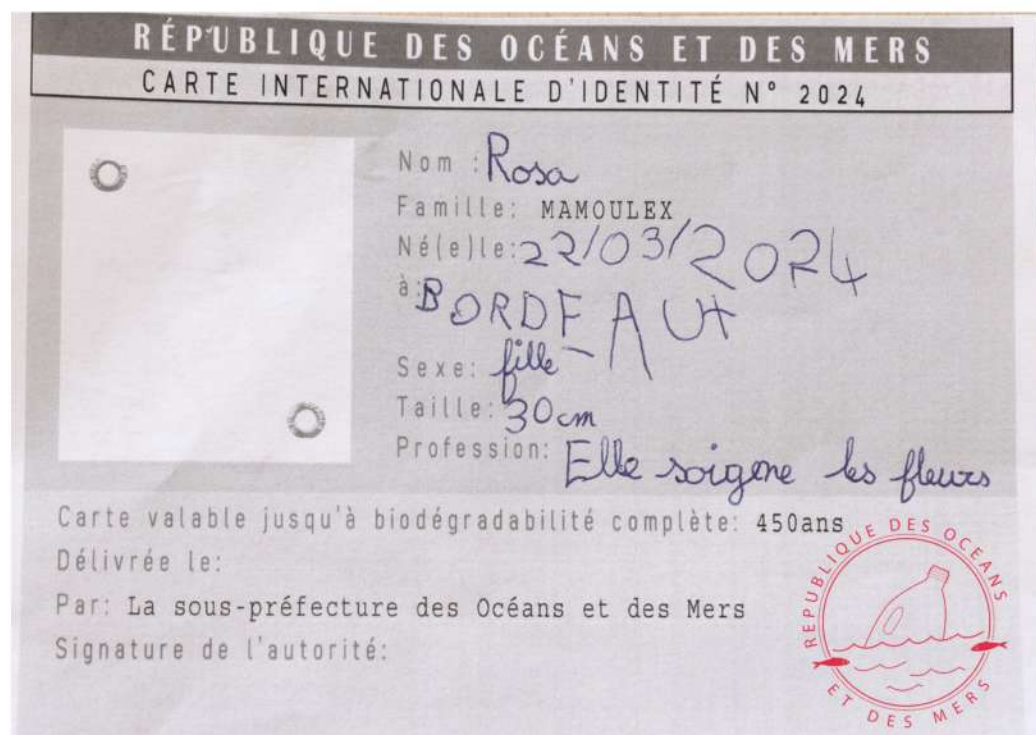 RÉPUBLIQUE DES OCÉANS ET DES MERS
CARTE INTERNATIONALE D'IDENTITÉ N° 2024
Nom : Rosa
Famille: MAMOULEX
Né(e)le: 22/03/2024
à: BORDEAUX
Sexe: fille
Taille: 30cm
Profession: Elle soigne les fleurs
Carte valable jusqu'à biodégradabilité complète: 450ans
Délivrée le:
Par: La sous-préfecture des Océans et des Mers
Signature de l'autorité:
REPUBLIQUE DES OCEANS
ET DES MERS